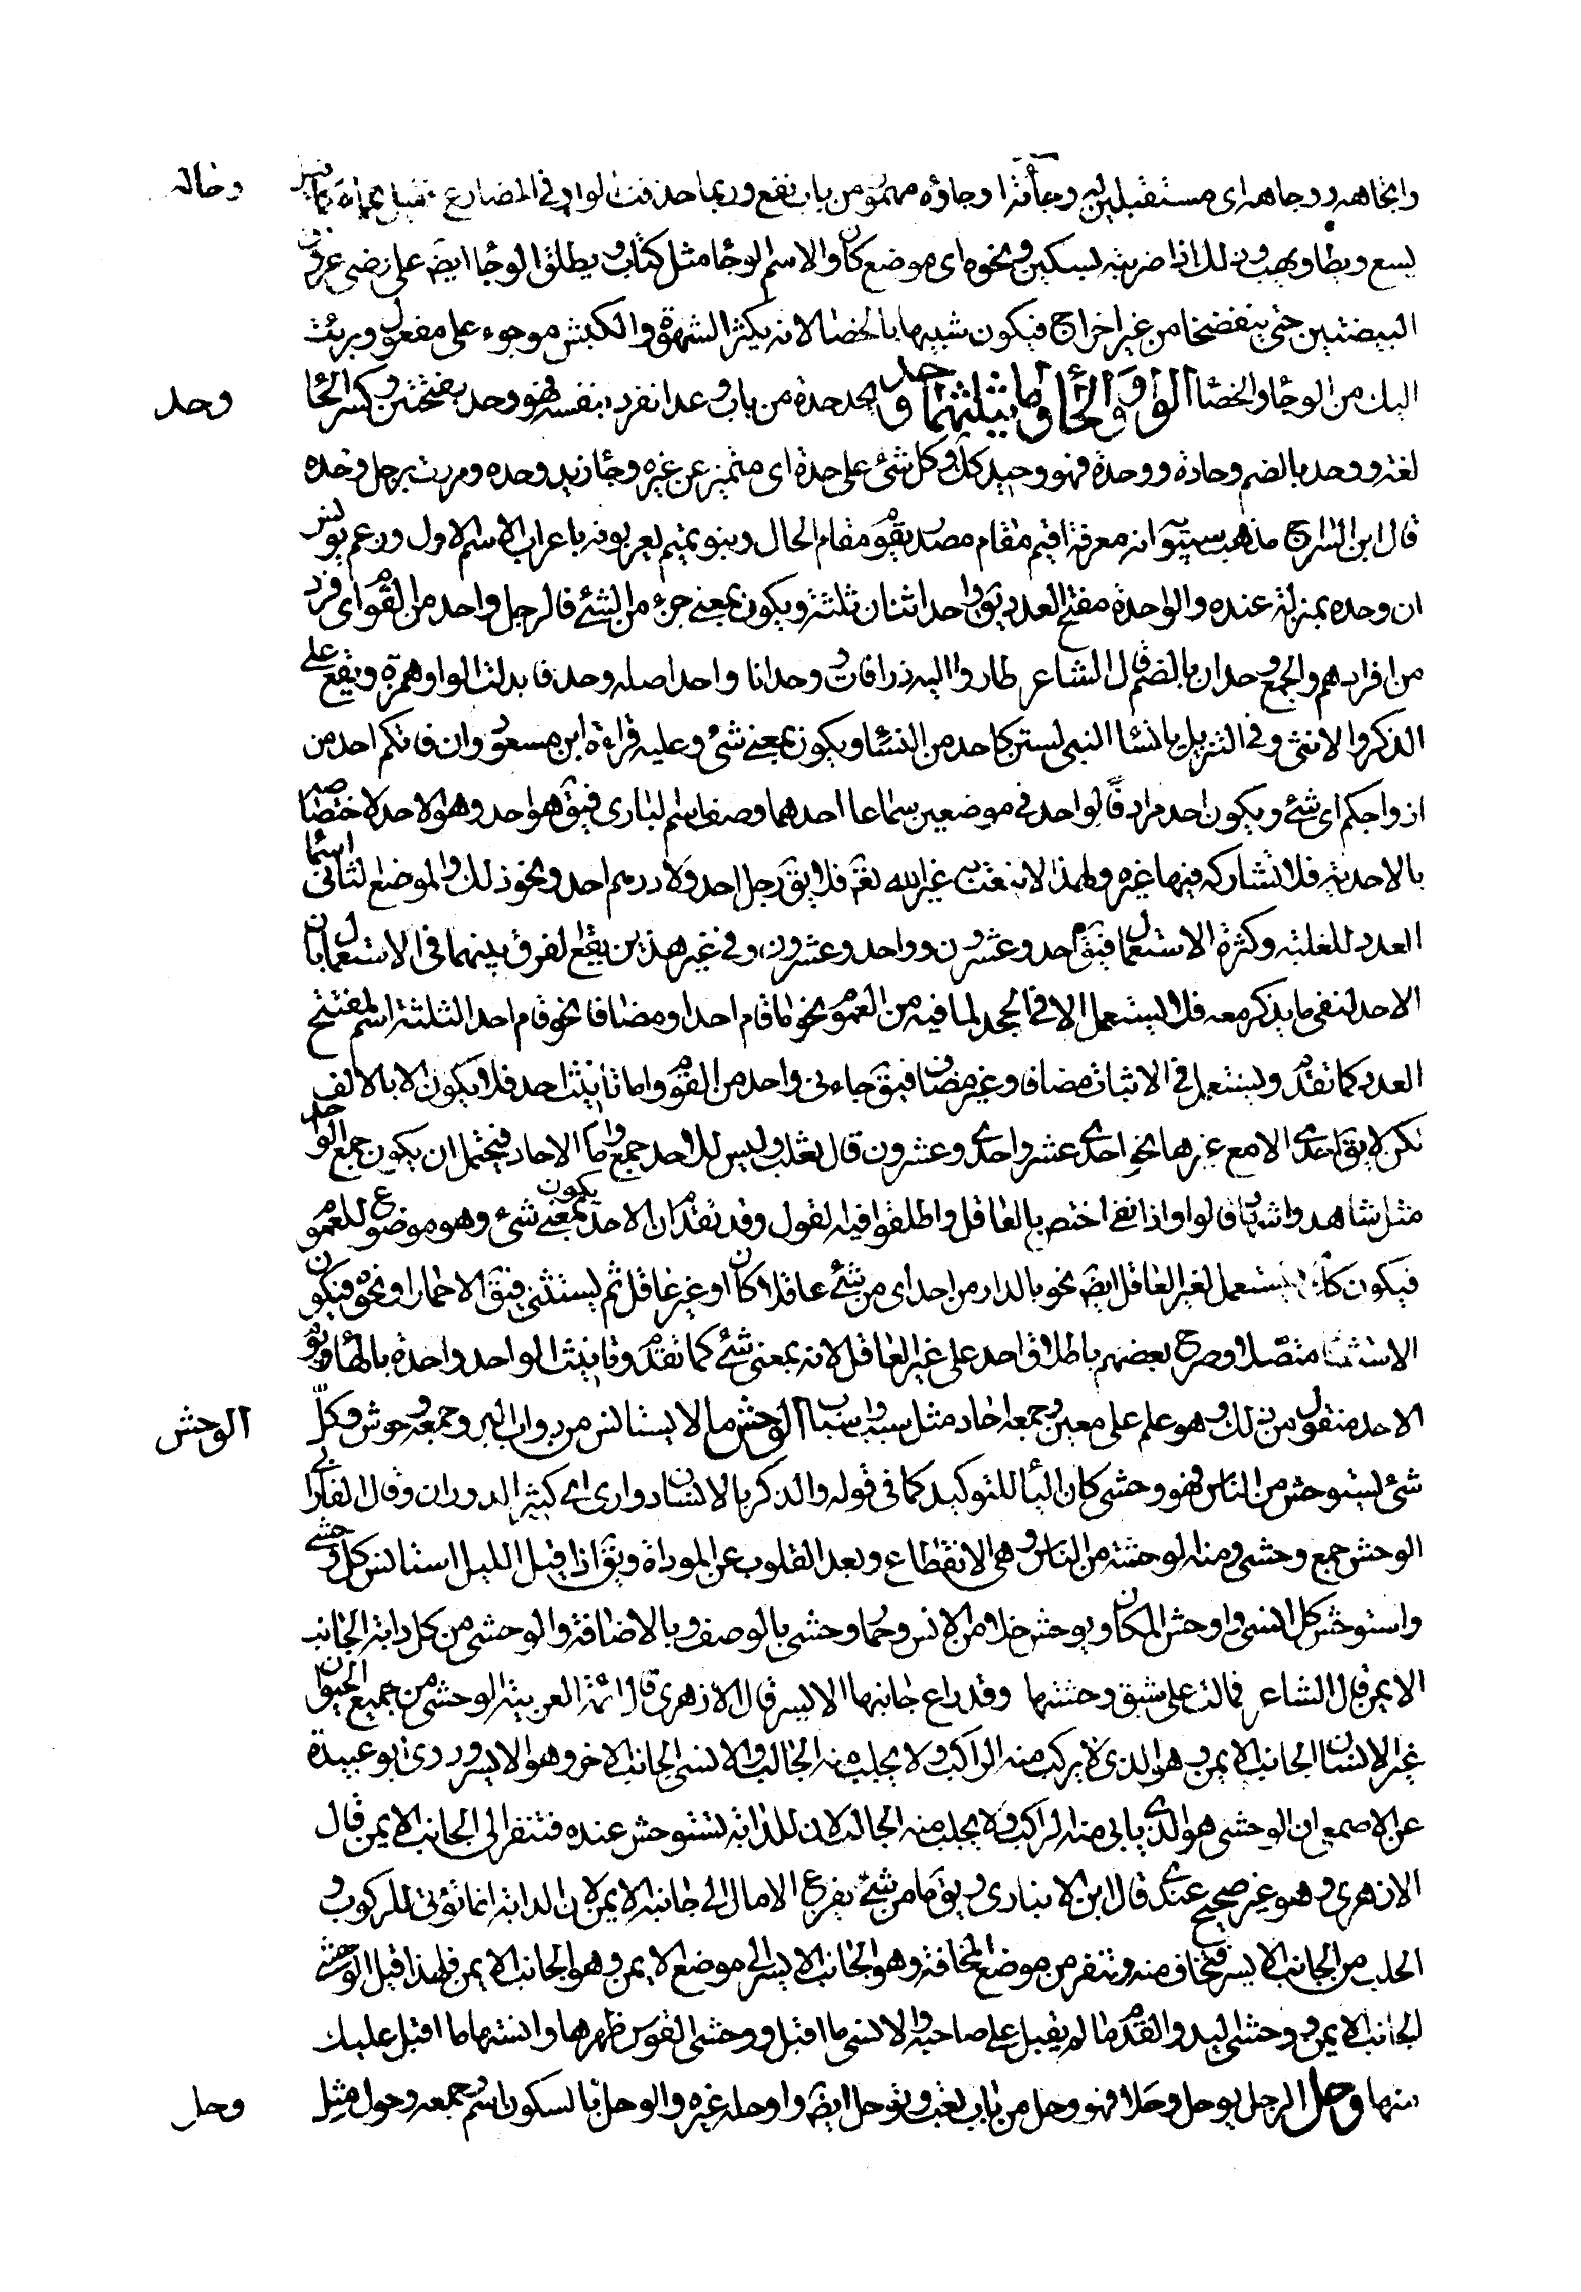 واتجاههم ووجاههم اى مستقبلين له وجأته اوجاؤه مهموز من باب نفع وربما حذفت الواو فى المضارع فقيل يجأ كما قيل
وجاته
يسع ويطأ ويهب وذلك اذا ضربته بسكين ونحوه اى موضع كان والاسم الوجا مثل كتاب ويطلق الوجا ايض على رض عروق
البيضتين حتى ينفضخا من غير اخراج فيكون شبيها بالخصا لانه يكسر الشهوة والكبش موجوء على مفعول وبرئت
اليك من الوجا والخصا الواو والحا وما يثلثهما وحد يحد حدة من باب وعد انفرد بنفسه فهو وحد بفتحتين وكسر الحا
وحد
لغة ووحد بالضم وحادة ووحدة فهو وحيد كك وكل شئ على حدة اى متميز عن غيره وجا زيد وحده ومررت برجل وحده
قال ابن السراج مذهب سيبويه انه معرفة اقيم مقام مصدر يقوم مقام الحال وبنو تميم يعربونه باعراب الاسم الاول وزعم يونس
ان وحده بمنزلة عنده والواحد مفتح العدد يق واحد اثنان ثلثة ويكون بمعنى جزء من الشئ فالرجل واحد من القوم اى فرد
من افرادهم والجمع وحدان بالضم قال الشاعر طاروا اليه زرافات ووحدانا واحد اصله وحد فابدلت الواو همزة ويقع على
الذكر والانثى وفى التنزيل يا نسا النبى لستن كاحد من النسا ويكون بمعنى شئ وعليه قراءة ابن مسعود وان فاتكم احد من
ازواجكم اى شئ ويكون احد مرادفا لواحد فى موضعين سماعا احدهما وصف اسم البارى فيق هو واحد وهو الاحد لاختصاصه
بالاحدية فلا يشاركه فيها غيره ولهذا لا ينعت به غير الله تعم فلا يق رجل احد ولا درهم احد ونحو ذلك والموضع الثانى اسما
العدد للغلبة وكثرة الاستعمال فيق احد وعشرون وواحد وعشرون وفى غير هذين يقع الفرق بينهما فى الاستعمال بان
الاحد لنفى ما يذكر معه فلا يستعمل الا فى الجحد لما فيه من العموم نحو ما قام احد او مضافا نحو قام احد الثلثة اسم لمفتتح
العدد كما تقدم ويستعمل فى الاثبات مضافا وغير مضاف فيق جاءنى واحد من القوم واما تانيث احد فلا يكون الا بالالف
لكن لا يق احدى الا مع غيرها نحو احدى عشر واحدى وعشرون قال ثعلب وليس للاحد جمع واما الاحاد فيحتمل ان يكون جمع الواحد
مثل شاهد واشهاد قالوا واذا نفى اختص بالعاقل واطلقوا فيه القول وقد تقدم ان الاحد يكون بمعنى شئ وهو موضوع للعموم
فيكون كك يستعمل لغير العاقل ايض نحو ما بالدار من احد اى من شئ عاقلا كان او غير عاقل ثم يستثنى فيق الا حمارا ونحوه فيكون
الاستثنا متصلا وصرح بعضهم باطلاق احد على غير العاقل لانه بمعنى شئ كما تقدم وتانيث الواحد واحدة بالها ويوم
الاحد منقول من ذلك وهو علم على معين وجمعه احاد مثل سبب واسباب الوحش ما لا يستانس من دواب البر وجمعه وحوش وكل
الوحش
شئ يستوحش من الناس فهو وحشى كان اليا للتوكيد كما فى قوله والدهر بالانسان دوارى اى كثير الدوران وقال الفارابى
الوحش جمع وحشى ومنه الوحشة من الناس وهى الانقطاع وبعد القلوب عن المودة ويق اذا اقبل الليل استانس كل وحشى
واستوحش كل انسى واوحش المكان وتوحش خلا من الانس وحمار وحشى بالوصف وبالاضافة والوحشى من كل دابة الجانب
الايمن قال الشاعر فمالت على شق وحشيها وقد ريع جانبها الايسر قال الازهرى قال ائمة العربية الوحشى من جميع الحيوان
غير الانسان الجانب الايمن وهو الذى لا يركب منه الراكب ولا يحلب منه الحالب والانسى الجانب الاخر وهو الايسر وروى ابو عبيدة
عن الاصمعى ان الوحشى هو الذى ياتى منه الراكب ولا يحلب منه الحالب لان للدابة تستوحش عنده فتنفر الى الجانب الايمن قال
الازهرى وهو غير صحيح عندى قال ابن الانبارى ويق ما من شئ يفزع الا مال الى جانبه الايمن لان الدابة انما تؤتى للركوب و
الحلب من الجانب الايسر فتخاف منه وتنفر من موضع المخافة وهو الجانب الايسر الى موضع الايمن وهو الجانب الايمن فلهذا قيل الوحشى
الجانب الايمن ووحشى اليد والقدم ما لم يقبل على صاحبه والانسى ما اقبل ووحشى القوس ظهرها وانسيها ما اقبل عليك
منها وحل الرجل يوحل وحلا فهو وحل من باب تعب وتوحل ايض واوحله غيره والوحل بالسكون اسم جمعه وحول مثل
وحل